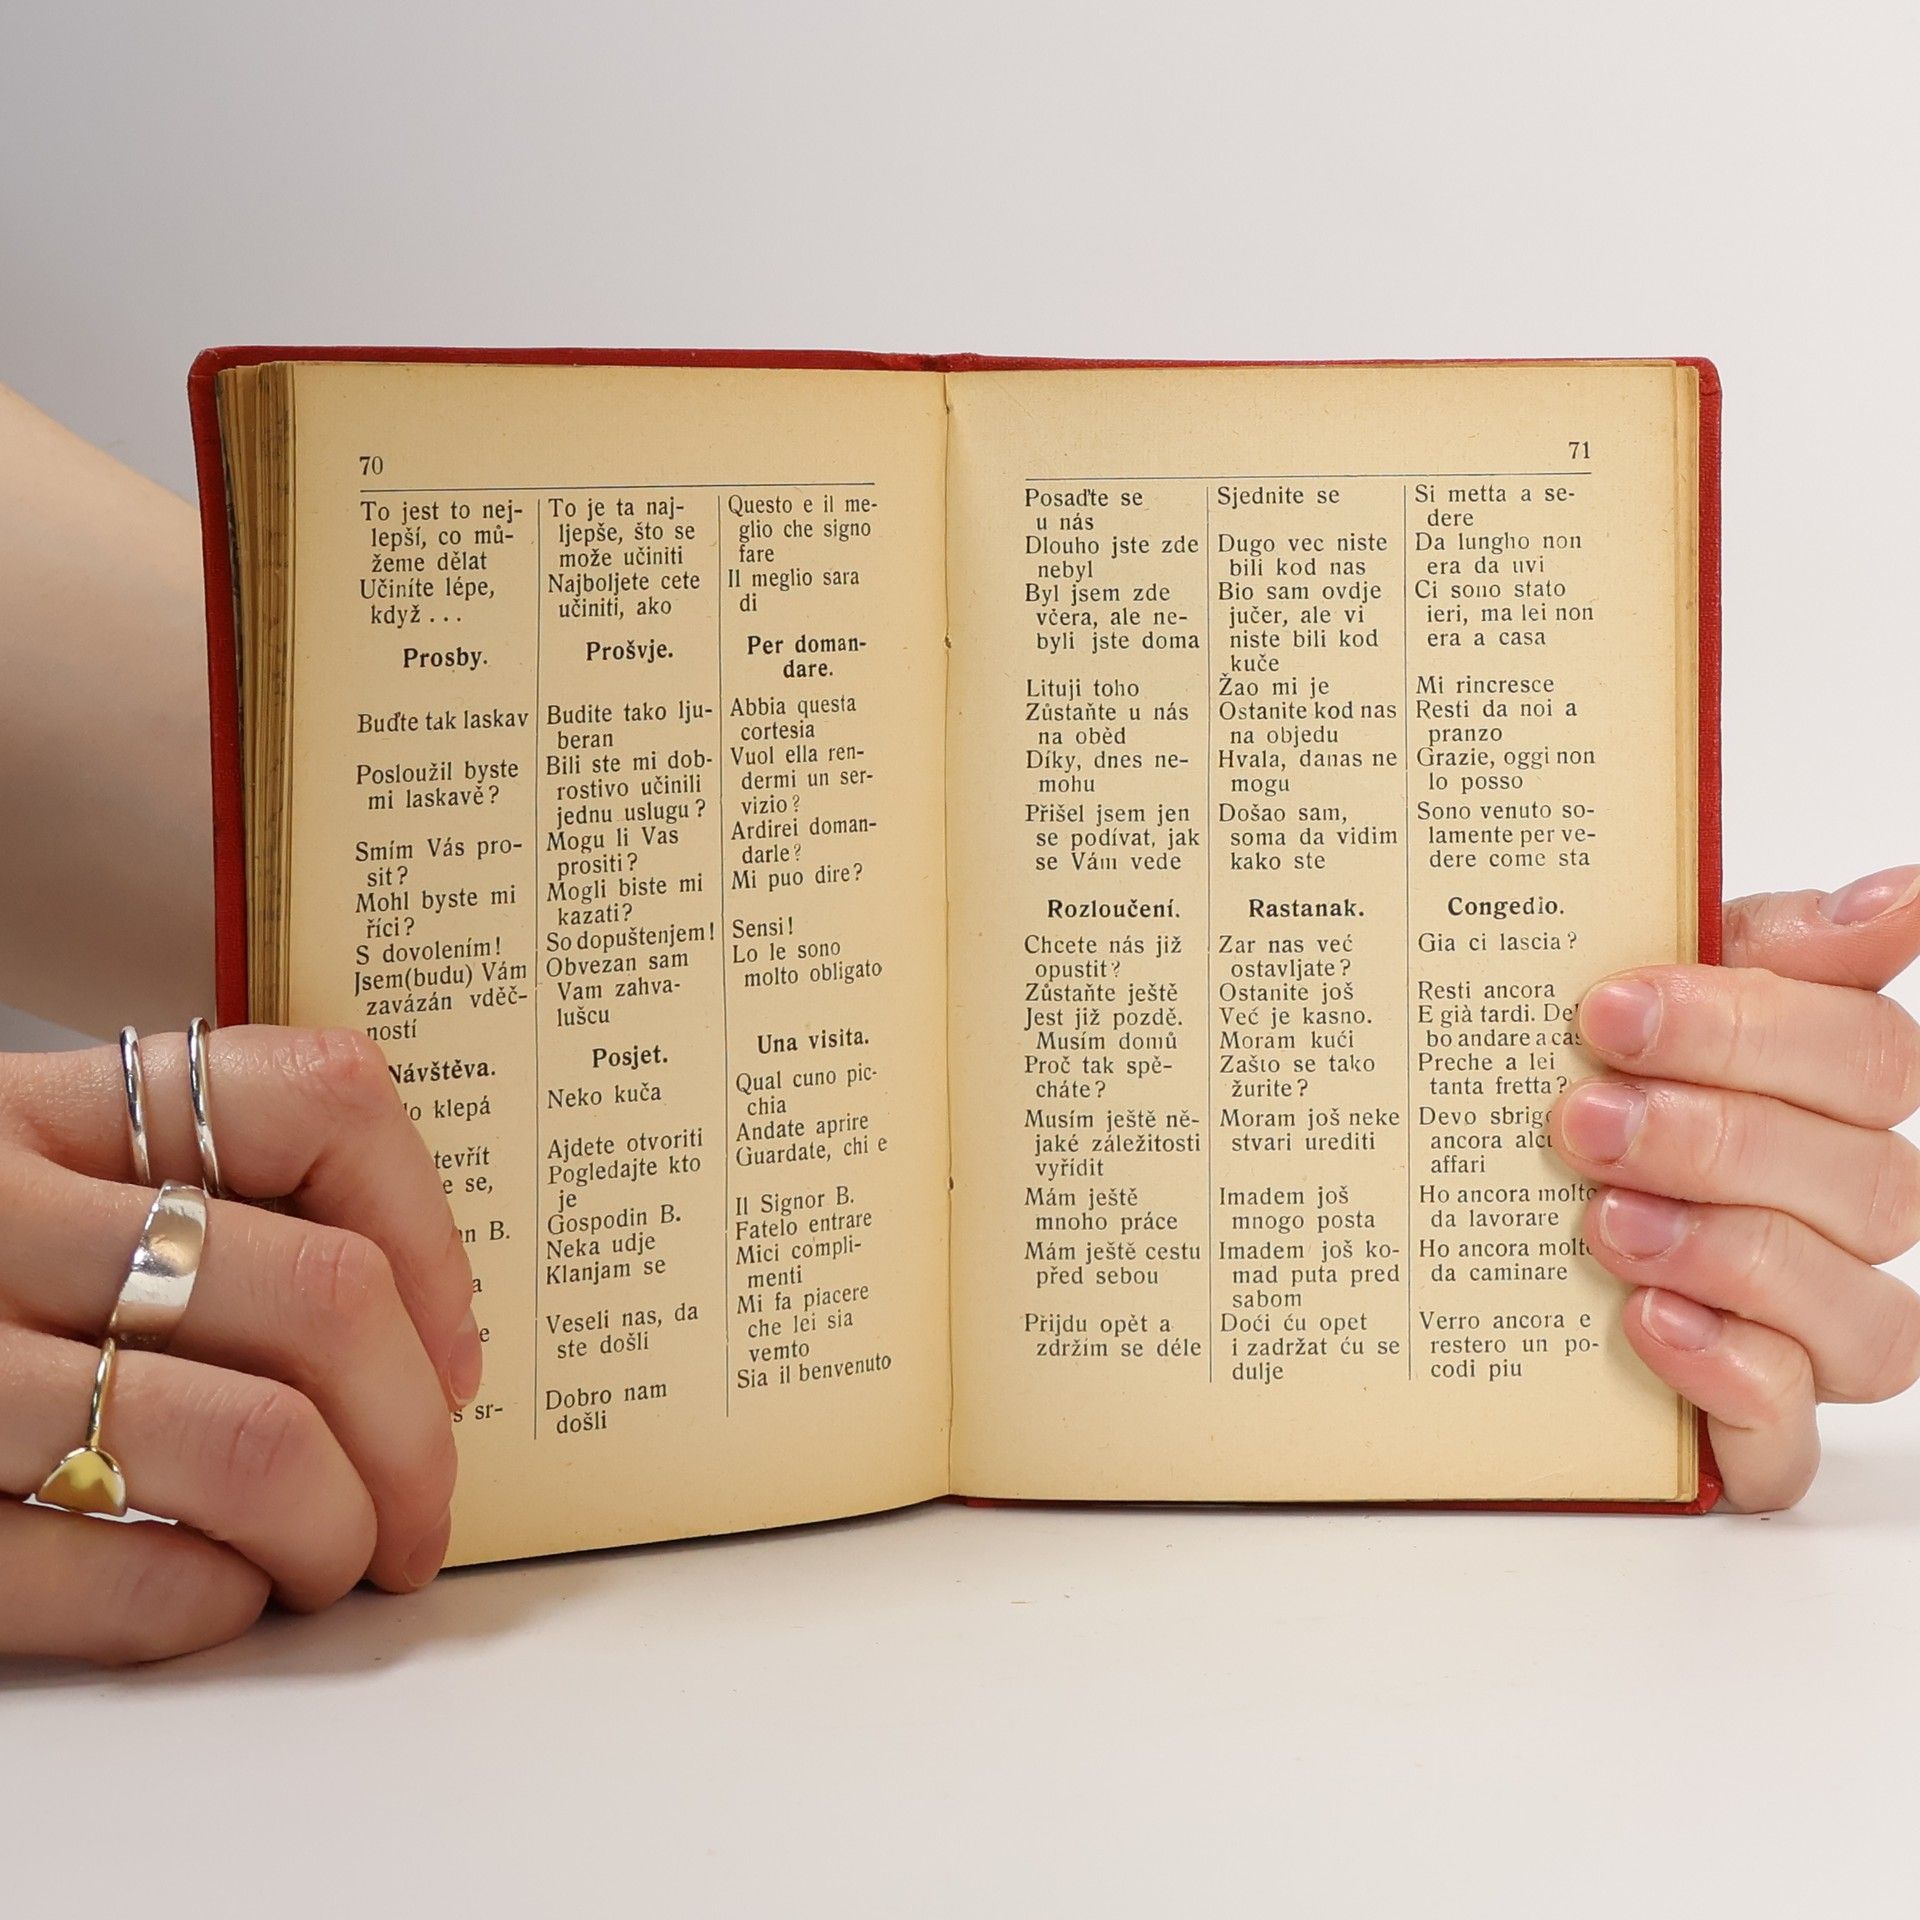 70
To jest to nej-
lepší, co mů-
žeme dělat
Učiníte lépe,
když . . .
Prosby.
Buďte tak laskav
Posloužil byste
mi laskavě?
Smím Vás pro-
sit?
Mohl byste mi
říci?
S dovolením!
Jsem(budu) Vám
zavázán vděč-
ností
Návštěva.
klepá
se,
B.
sr-
To je ta naj-
ljepše, što se
može učiniti
Najboljete cete
učiniti, ako
Prošvje.
Budite tako lju-
beran
Bili ste mi dob-
rostivo učinili
jednu uslugu?
Mogu li Vas
prositi?
Mogli biste mi
kazati?
So dopuštenjem!
Obvezan sam
Vam zahva-
lušcu
Posjet.
Neko kuča
Ajdete otvoriti
Pogledajte kto
je
Gospodin B.
Neka udje
Klanjam se
Veseli nas, da
ste došli
Dobro nam
došli
Questo e il me-
glio che signo
fare
Il meglio sara
di
Per doman-
dare.
Abbia questa
cortesia
Vuol ella ren-
dermi un ser-
vizio?
Ardirei doman-
darle?
Mi puo dire?
Sensi!
Lo le sono
molto obligato
Una visita.
Qual cuno pic-
chia
Andate aprire
Guardate, chi e
Il Signor B.
Fatelo entrare
Mici compli-
menti
Mi fa piacere
che lei sia
vemto
Sia il benvenuto
71
Posaďte se
u nás
Dlouho jste zde
nebyl
Byl jsem zde
včera, ale ne-
byli jste doma
Lituji toho
Zůstaňte u nás
na oběd
Díky, dnes ne-
mohu
Přišel jsem jen
se podívat, jak
se Vám vede
Rozloučení.
Chcete nás již
opustit?
Zůstaňte ještě
Jest již pozdě.
Musím domů
Proč tak spě-
cháte?
Musím ještě ně-
jaké záležitosti
vyřídit
Mám ještě
mnoho práce
Mám ještě cestu
před sebou
Přijdu opět a
zdržím se déle
Sjednite se
Dugo vec niste
bili kod nas
Bio sam ovdje
jučer, ale vi
niste bili kod
kuče
Žao mi je
Ostanite kod nas
na objedu
Hvala, danas ne
mogu
Došao sam,
soma da vidim
kako ste
Rastanak.
Zar nas već
ostavljate?
Ostanite još
Već je kasno.
Moram kući
Zašto se tako
žurite?
Moram još neke
stvari urediti
Imadem još
mnogo posta
Imadem još ko-
mad puta pred
sabom
Doći ću opet
i zadržat ću se
dulje
Si metta a se-
dere
Da lungho non
era da uvi
Ci sono stato
ieri, ma lei non
era a casa
Mi rincresce
Resti da noi a
pranzo
Grazie, oggi non
lo posso
Sono venuto so-
lamente per ve-
dere come sta
Congedio.
Gia ci lascia?
Resti ancora
E già tardi.
bo andare a
Preche a lei
tanta fretta?
Devo
ancora
affari
Ho ancora molto
da lavorare
Ho ancora
da caminare
Verro ancora e
restero un po-
codi piu